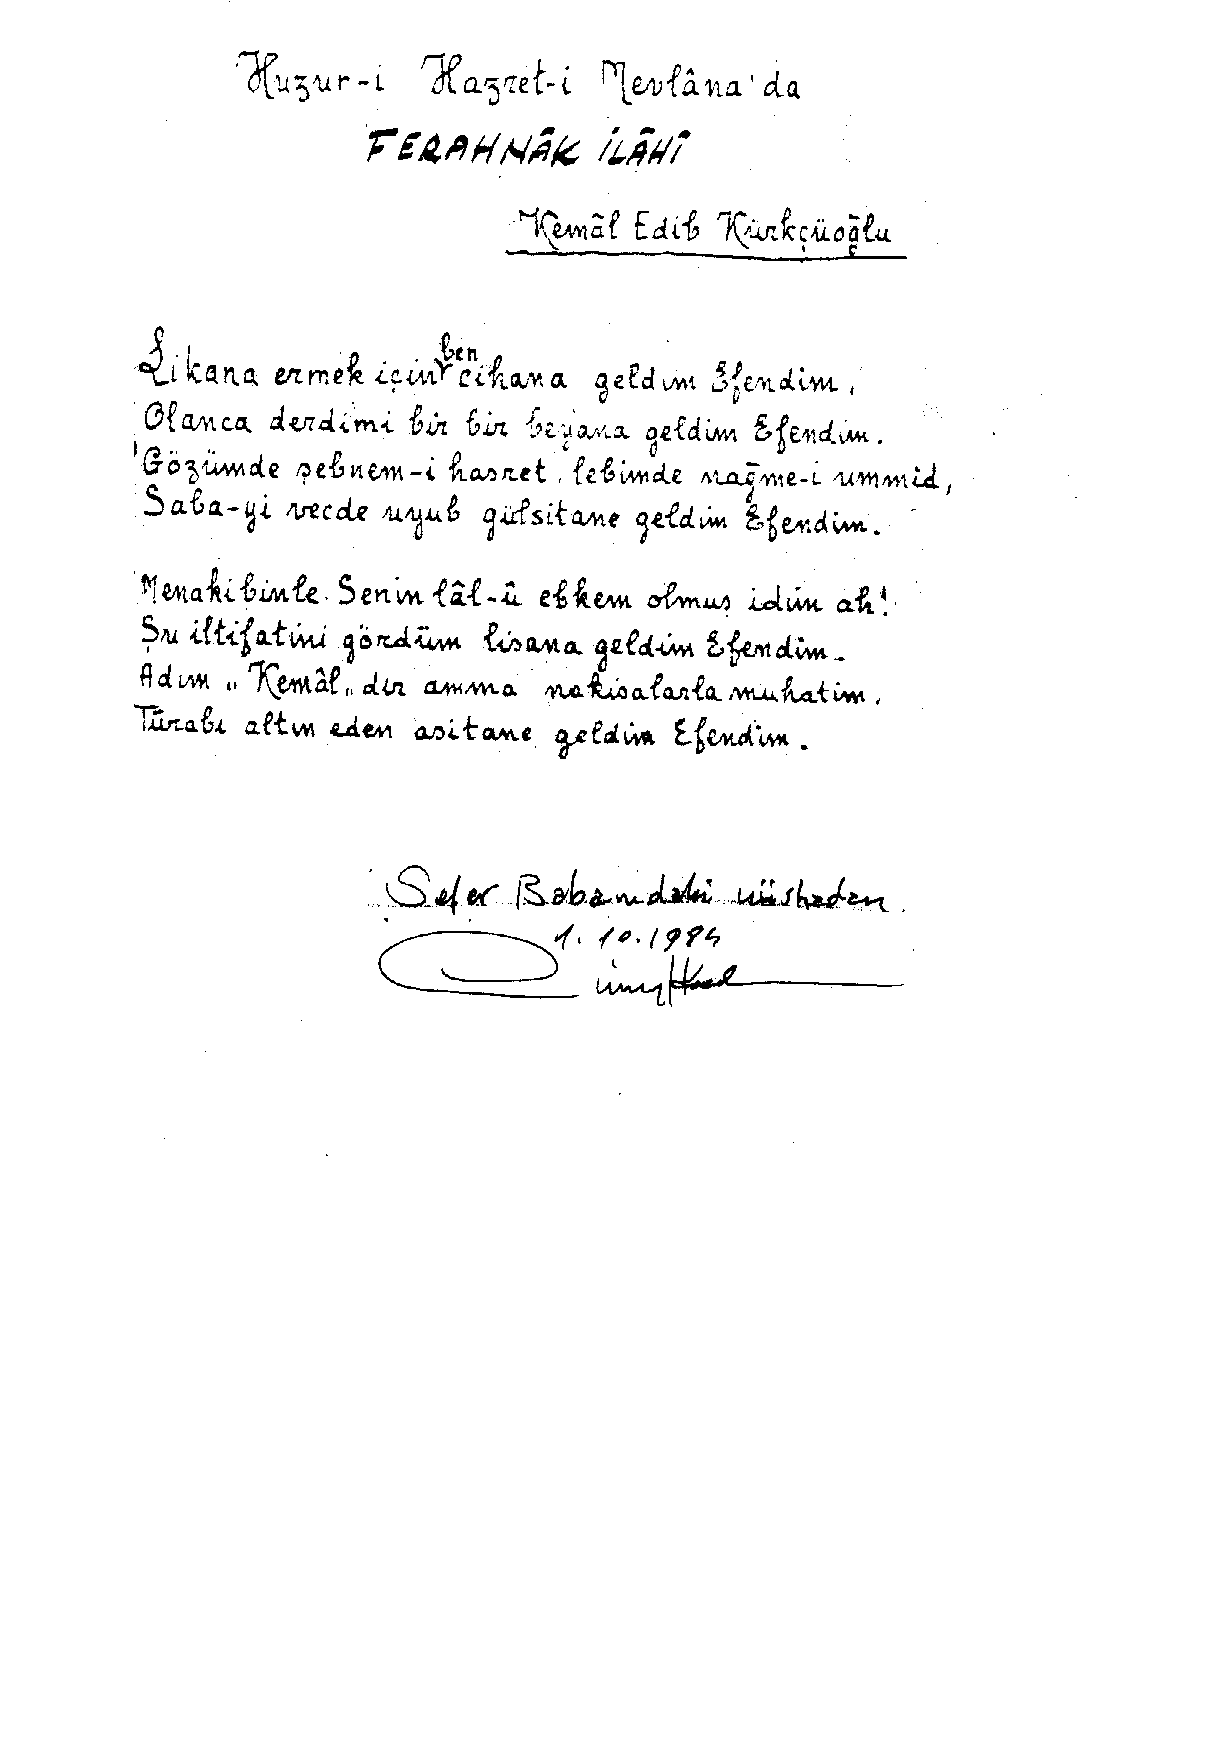 Huzur-i Hazret-i Mevlâna'da
FERAHNÂK İLÂHÎ
Kemâl Edib Kürkçüoğlu
Likana ermek için ben cihana geldim Efendim,
Olanca derdimi bir bir beyana geldim Efendim.
Gözümde şebnem-i hasret, lebimde nağme-i ummid,
Saba-yi vecde uyub gülsitane geldim Efendim.
Menakibinle Senin lâl-û ebkem olmuş idim ah!
Şu iltifatini gördüm lisana geldim Efendim.
Adım "Kemâl" dir amma nakisalarla muhatim,
Türabi altın eden asitane geldim Efendim.
Sefer Babamdaki nüshadan
1.10.1984